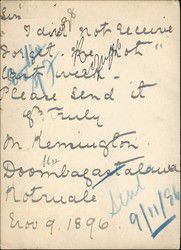 Sir
I did not receive
"Forget Me Not"
last week.
Please send it
Yrs Truly
M. Kennington.
Doombagastalawa
Kotmale
Nov 9. 1896
Sent
9/11/96